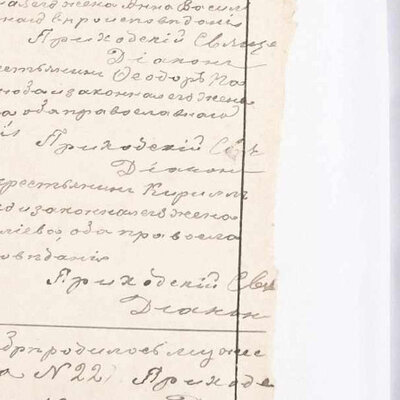 жена Анна Васил
наго вероисповѣданія
Приходскій Свяще
Діаконъ
естьянинъ Ѳеодоръ На
законная его жена
оба православнаго
Приходскій Свя
Діаконъ
крестьянинъ Кириллъ
и законная его жена
оба правосла
овѣданія
Приходскій Свя
Діаконъ
родилось муже
а N 22) Приходс